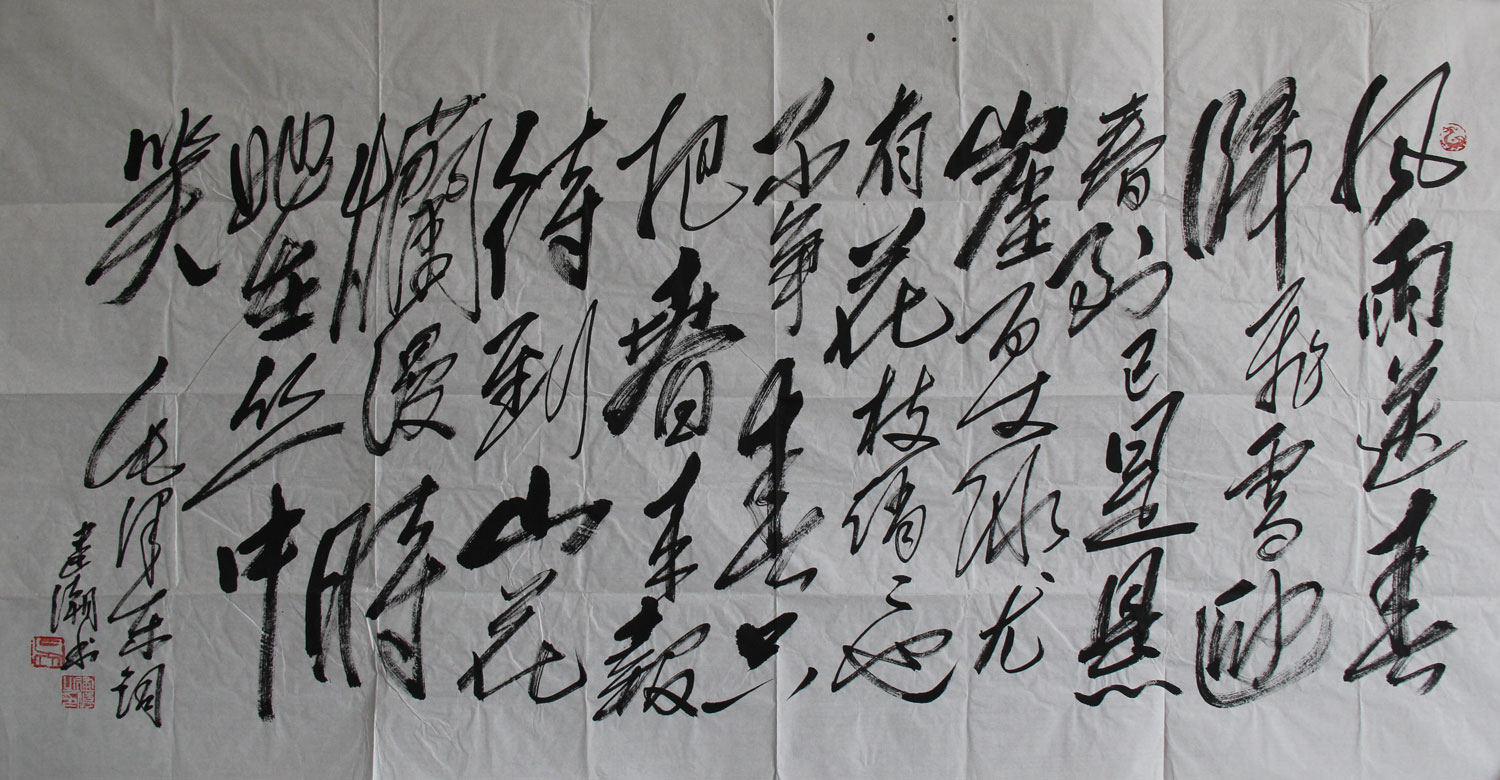 风雨送春
歸飛雪迎
春到已是悬
崖百丈冰尤
有花枝俏〻也
不争春只
把春来報
待到山花
爛漫時
她在丛中
笑
毛泽东词
建潮书